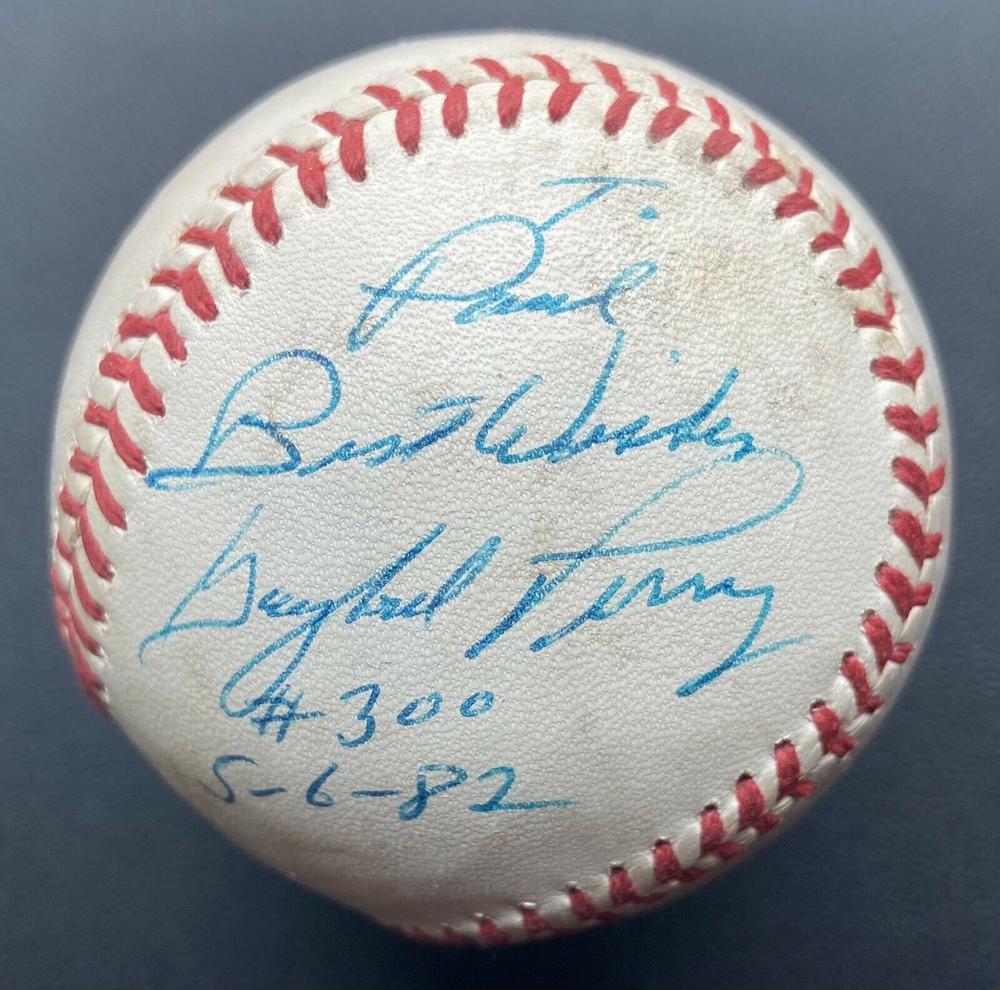 To
Paul
Best Wishes
Gaylord Perry
#300
5-6-82